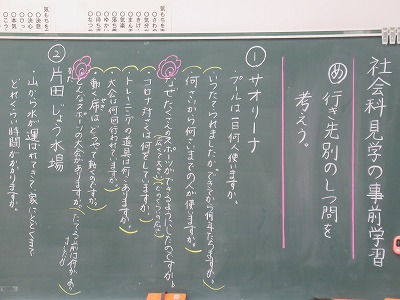 社会科見学の事前学習
め 行き先別のしつ問を
考えよう。
① サオリーナ
・プールは一日何人使いますか。
・いつたてられましたか。できてから何年たちますか。
・何さいから何さいまでの人が使いますか。
・なぜたくさんのスポーツができるようにしたのですか。
・コロナ対さくは何をしていますか。
・トレーニングの道具は何こありますか。
・大会は何回行われていますか。
・動く席はどうやって動くのですか。
・どんなスポーツの大会がありますか。
② 片田じょう水場
・山から水が運ばれてきて、家にとどくまで
どれくらい時間がかかりますか。